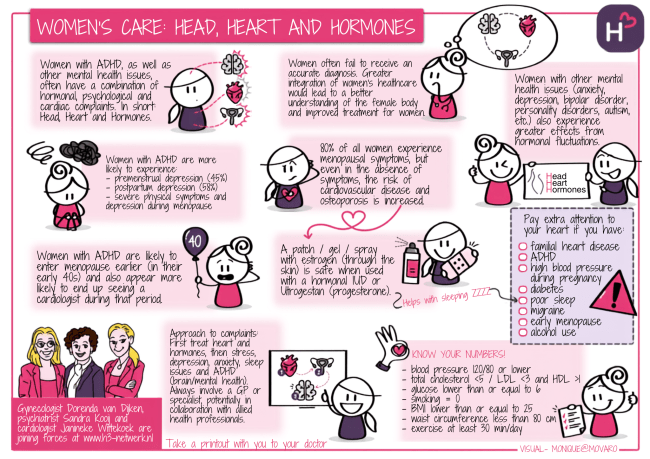 WOMEN'S CARE: HEAD, HEART AND HORMONES
H
Women with ADHD, as well as
other mental health issues,
often have a combination of
hormonal, psychological and
cardiac complaints. In short
Head, Heart and Hormones.
Women often fail to receive an
accurate diagnosis. Greater
integration of women's healthcare
would lead to a better
understanding of the female body
and improved treatment for women.
Women with other mental
health issues (anxiety,
depression, bipolar disorder,
personality disorders, autism,
etc.) also experience
greater effects from
hormonal fluctuations.
Women with ADHD are more
likely to experience:
- premenstrual depression (45%)
- postpartum depression (58%)
- severe physical symptoms and
depression during menopause
80% of all women experience
menopausal symptoms, but
even in the absence of
symptoms, the risk of
cardiovascular disease and
osteporosis is increased.
Head
Heart
Hormones
Women with ADHD are likely to
enter menopause earlier (in their
early 40s) and also appear more
likely to end up seeing a
cardiologist during that period.
40
A patch / gel / spray
with estrogen (through the
skin) is safe when used
with a hormonal IUD or
Utrogestan (progesterone).
Helps with sleeping ZZZZ
Pay extra attention to
your heart if you have:
familial heart disease
ADHD
high blood pressure
during pregnancy
diabetes
poor sleep
migraine
early menopause
alcohol use
Gynecologist Dorenda van Dijken,
psychiatrist Sandra Kooij and
cardiologist Janneke Wittekoek are
joining forces at www.h3-netwerk.nl
Approach to complaints:
First treat heart and
hormones, then stress,
depression, anxiety, sleep
issues and ADHD
(brain/mental health).
Always involve a GP or
specialist, potentially in
collaboration with allied
health professionals.
Take a printout with you to your doctor
KNOW YOUR NUMBERS!
- blood pressure 120/80 or lower
- total cholesterol <5 / LDL <3 and HDL >1
- glucose lower than or equal to 6
- smoking = 0
- BMI lower than or equal to 25
- waist circumference less than 80 cm
- exercise at least 30 min/day
VISUAL- MONIQUE@MOVARO